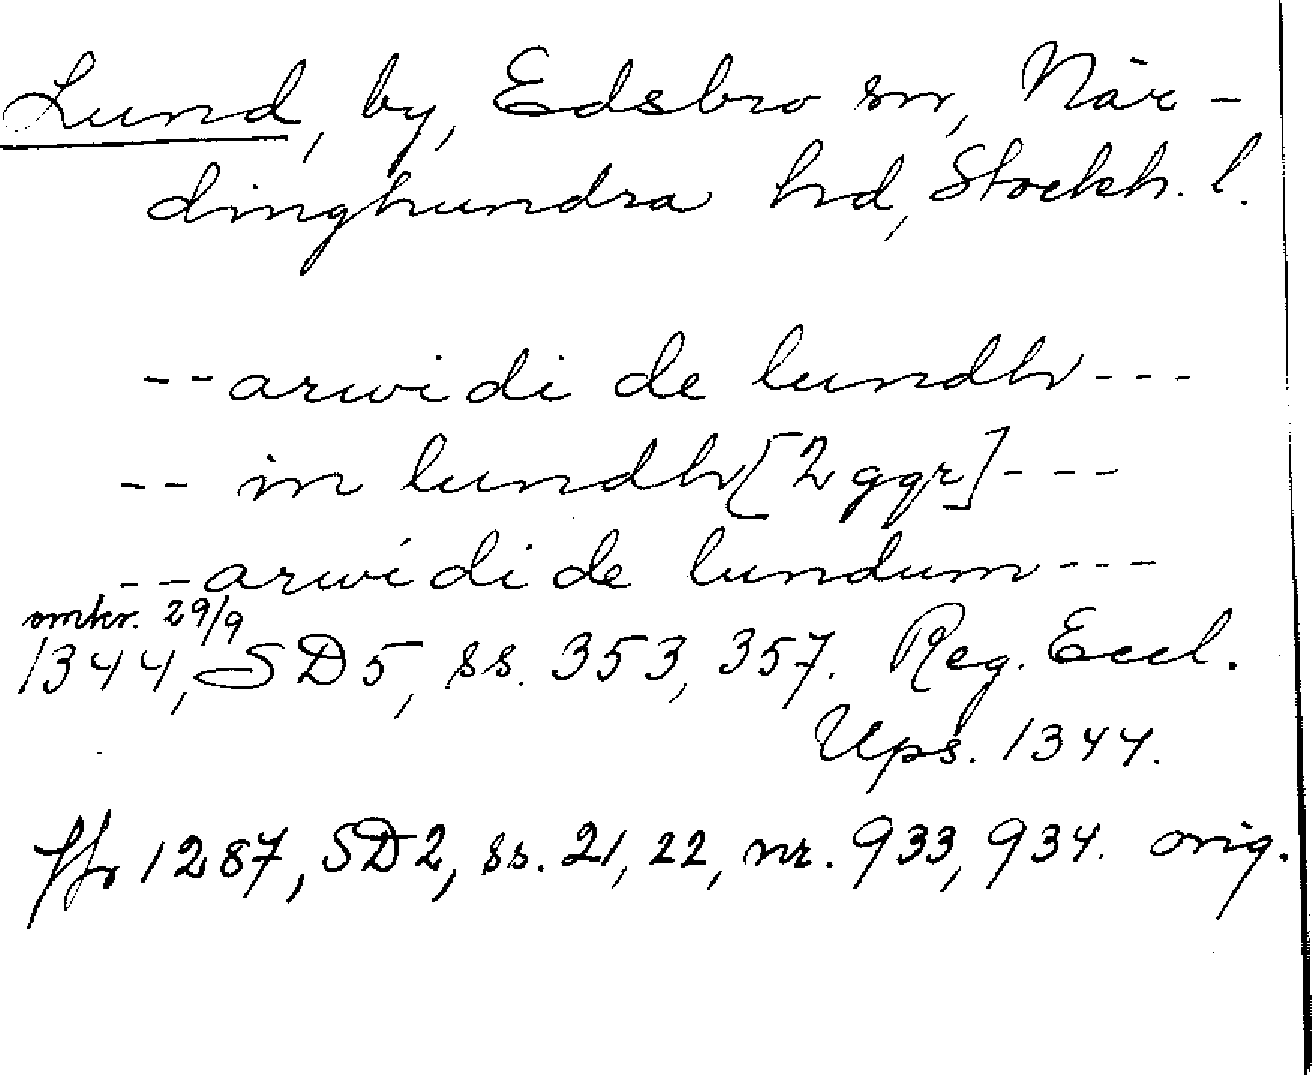 Lund, by, Edsbro sn, När-
dinghundra hd, Stockh. l.
--arwidi de lundh---
-- in lundh [2 ggr]---
--arwidi de lundum---
omkr. 29/9
1344, SD5, ss. 353, 357. Reg. Eccl.
Ups. 1344.
1287, SD2, ss. 21, 22, nr. 933, 934. orig.